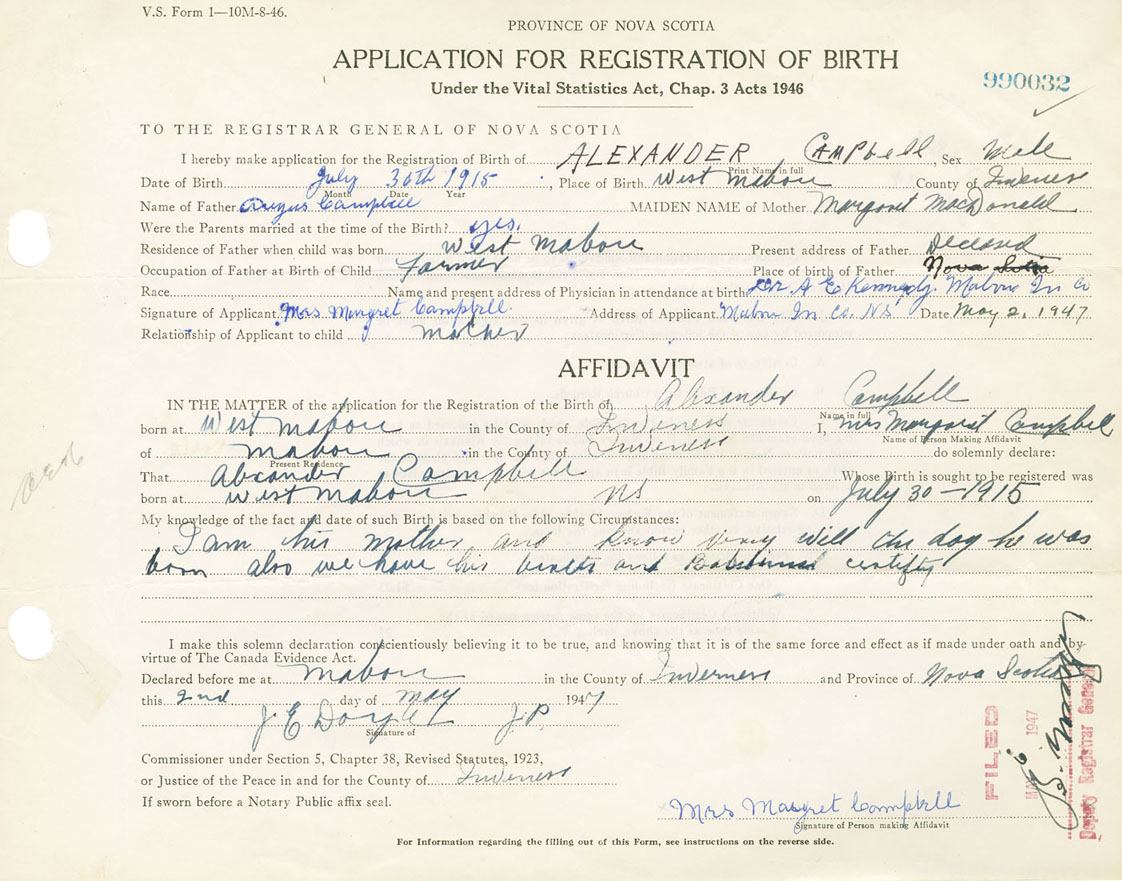 V.S. Form 1—10M-8-46.
PROVINCE OF NOVA SCOTIA
APPLICATION FOR REGISTRATION OF BIRTH
Under the Vital Statistics Act, Chap. 3 Acts 1946
990032
TO THE REGISTRAR GENERAL OF NOVA SCOTIA
I hereby make application for the Registration of Birth of ALEXANDER CAMPbell, Sex Male
Print Name in full
Date of Birth July 30th 1915, Place of Birth West Mabou County of Inverness
Month Date Year
Name of Father Angus Campbell MAIDEN NAME of Mother Margaret MacDonald
Were the Parents married at the time of the Birth? yes.
Residence of Father when child was born West Mabou Present address of Father
Occupation of Father at Birth of Child Farmer Place of birth of Father Nova Scotia
Race Name and present address of Physician in attendance at birth Dr. A E Kennedy. Mabou In Co
Signature of Applicant Mrs. Margret Campbell. Address of Applicant Mabou In. Co. NS Date May 2, 1947
Relationship of Applicant to child mother
AFFIDAVIT
IN THE MATTER of the application for the Registration of the Birth of Alexander Campbell
Name in full
born at West Mabou in the County of Inverness I, Mrs Margaret Campbell
Name of Person Making Affidavit
of Mabou in the County of Inverness do solemnly declare:
Present Residence
That Alexander Campbell Whose Birth is sought to be registered was
born at West Mabou NS on July 30—1915
My knowledge of the fact and date of such Birth is based on the following Circumstances:
I am his mother and know very well the day he was
born also we have his and certifty
I make this solemn declaration conscientiously believing it to be true, and knowing that it is of the same force and effect as if made under oath and by
virtue of The Canada Evidence Act.
Declared before me at Mabou in the County of Inverness and Province of Nova Scotia
this 2nd day of May 1947
J. E Doyle J.P.
Signature of
Commissioner under Section 5, Chapter 38, Revised Statutes, 1923,
or Justice of the Peace in and for the County of Inverness
If sworn before a Notary Public affix seal.
Mrs Margret Campbell
Signature of Person making Affidavit
For Information regarding the filling out of this Form, see instructions on the reverse side.
FILED
1947
Deputy Registrar General